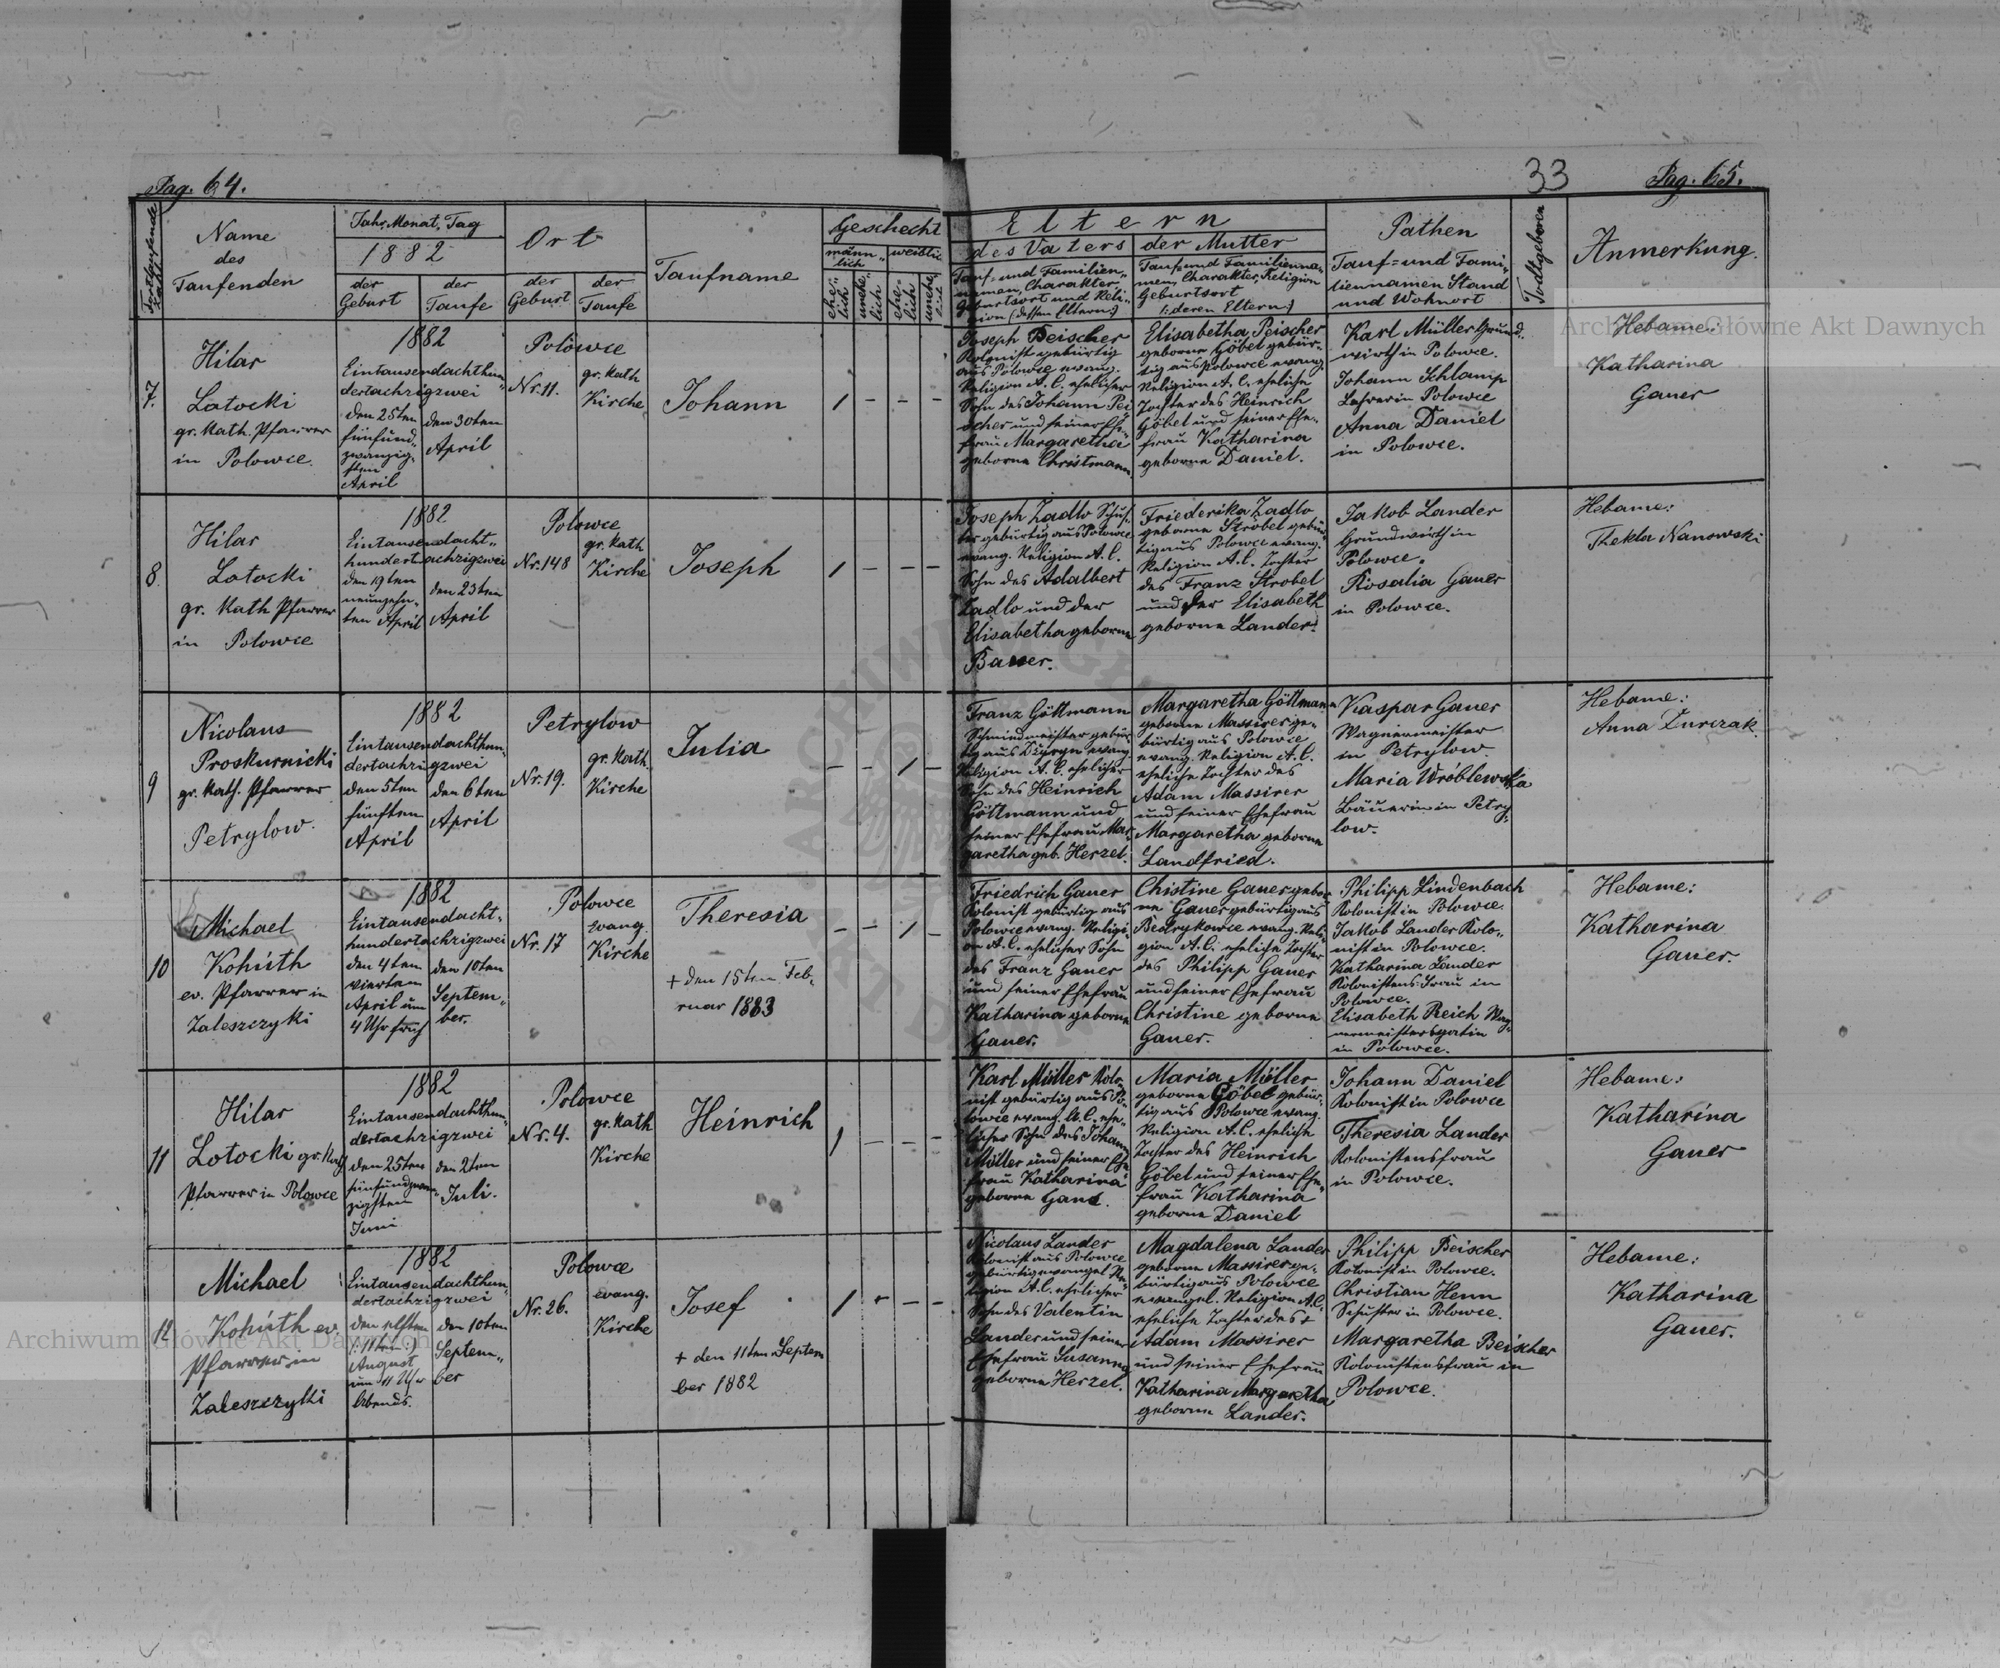 Pag. 64.
33
Pag. 65.
Fortlaufende Zahl
Name
des
Taufenden
Jahr, Monat, Tag
1882
der
Geburt
der
Taufe
Ort
der
Geburt
der
Taufe
Taufname
Geschecht
männ„
lich
weiblich
ehe„
lich
unehe„
lich
ehe„
lich
unehe
lich
Eltern
des Vaters
der Mutter
Tauf= und Familien„
namen, Charakter
Geburtsort und Reli„
gion (: dessen Eltern:)
Tauf=und Familienna„
men, Charakter, Religion
Geburtsort
(: deren Eltern:)
Pathen
Tauf=und Fami„
liennamen Stand
und Wohnort
Todtgeboren
Anmerkung.
7.
Hilar
Lotocki
gr. Kath. Pfarrer
in Polowce.
1882
Eintausendachthun„
dertachzigzwei
den 25ten
fünfund„
zwanzig„
sten
April
den 30ten
April
Polowce
Nr. 11.
gr. Kath
Kirche
Johann
1 – – –
Joseph Beischer
Kolonist gebürtig
aus Polowce evang.
Religion A. C. ehelicher
Sohn des Johann Pei
scher und seiner Ehe„
frau Margaretha
geborne Christmann.
Elisabetha Peischer
geborne Göbel gebür„
tig aus Polowce evang.
Religion A. C. eheliche
Tochter des Heinrich
Göbel und seiner Ehe„
frau Katharina
geborne Daniel.
Karl Müller Grund„
wirth in Polowce.
Johann Schlamp
Lehrer in Polowce
Anna Daniel
in Polowce.
Hebame:
Katharina
Gauer
8.
Hilar
Lotocki
gr. Kath Pfarrer
in Polowce
1882
Eintausendacht„
hundertachzigzwei
den 19ten
neunzehn„
ten April
den 23ten
April
Polowce
Nr. 148
gr. Kath
Kirche
Joseph
1 – – –
Joseph Zadlo Schus„
ter gebürtig aus Polowce
evang. Religion A. C.
Sohn des Adalbert
Zadlo und der
Elisabetha geborne
Bauer.
Friederika Zadlo
geborne Strobel gebür„
tig aus Polowce evang.
Religion A. C. Tochter
des Franz Strobel
und der Elisabeth
geborne Lander.
Jakob Lander
Grundwirth in
Polowce.
Rosalia Gauer
in Polowce.
Hebame:
Thekla Nanowski
9
Nicolaus
Proskurnicki
gr. Kath. Pfarrer
Petrylow.
1882
Eintausendachthun„
dertachzigzwei
den 5ten
fünften
April
den 6ten
April
Petrylow
Nr. 19.
gr. Kath.
Kirche
Julia
– – 1 –
Franz Göttmann
Schmiedmeister gebür„
tig aus evang
Religion A. C. ehelicher
Sohn des Heinrich
Göttmann und
seiner Ehefrau Mar„
garetha geb. Herzel.
Margaretha Göttmann
geborne Massirer ge„
bürtig aus Polowce
evang. Religion A. C.
eheliche Tochter des
Adam Massirer
und seiner Ehefrau
Margaretha geborne
Landfried.
Kaspar Gauer
Wagnermeister
in Petrylow
Maria Wróblewska
Bäuerin in Petry„
low.
Hebame:
Anna Zurczak.
10
Michael
Kohúth
ev. Pfarrer in
Zaleszczyki
1882
Eintausendacht„
hundertachzigzwei
den 4ten
vierten
April um
4 Uhr früh
den 10ten
Septem„
ber.
Polowce
Nr. 17
evang.
Kirche
Theresia
+ den 15ten Feb„
ruar 1883
– – 1 –
Friedrich Gauer
Kolonist gebürtig aus
Polowce evang. Religi„
on A. C. ehelicher Sohn
des Franz Gauer
und seiner Ehefrau
Katharina geborne
Gauer.
Chistine Gauer gebor
ne Gauer gebürtig aus
Bedrykowce evang. Reli„
gion A. C. eheliche Tochter
des Philipp Gauer
und seiner Ehefrau
Christine geborne
Gauer.
Philipp Lindenbach
Kolonist in Polowce.
Jakob Lander Kolo„
nist in Polowce.
Katharina Lander
Kolonistens-Frau in
Polowce.
Elisabeth Reich Wag„
nermeistersgatin
in Polowce.
Hebame:
Katharina
Gauer.
11
Hilar
Lotocki gr. Kath
Pfarrer in Polowce
1882
Eintausendachthun„
dertachzigzwei
den 25ten
fünfundzwan„
zigsten
Juni
den 2ten
Juli.
Polowce
Nr. 4.
gr. Kath
Kirche
Heinrich
1 – – –
Karl Müller Kolo„
nist gebürtig aus Po„
lowce evang. A. C. ehe„
licher Sohn des Johann
Müller und seiner Ehe
frau Katharina
geborne
Maria Müller
geborne Göbel gebür„
tig aus Polowce evang.
Religion A. C. eheliche
Tochter des Heinrich
Göbel und seiner Ehe„
frau Katharina
geborne Daniel
Johann Daniel
Kolonist in Polowce
Theresia Lander
Kolonistensfrau
in Polowce.
Hebame:
Katharina
Gauer
12
Michael
Kohúth ev
Pfarrer in
Zaleszczyki
1882
Eintausendachthun„
dertachzigzwei
den elften
(: 11ten :)
August
um 11 Uhr
Abends.
den 10ten
Septem„
ber
Polowce
Nr. 26.
evang.
Kirche
Josef
+ den 11ten Septem
ber 1882
1 – – –
Nicolaus Lander
Kolonist aus Polowce
gebürtig evangel. Re„
ligion A. C. ehelicher
Sohn des Valentin
Lander und seiner
Ehefrau Susanna
geborne Herzel.
Magdalena Lander
geborne Massirer ge„
bürtig aus Polowce
evangel. Religion A. C.
eheliche Tochter des
Adam Massirer
und seiner Ehefrau
Katharina Margaretha
geborne Lander.
Philipp Beischer
Kolonist in Polowce.
Christian Henn
Schuster in Polowce.
Margaretha Beischer
Kolonistensfrau in
Polowce.
Hebame:
Katharina
Gauer.
Archiwum Główne Akt Dawnych
Archiwum Główne Akt Dawnych